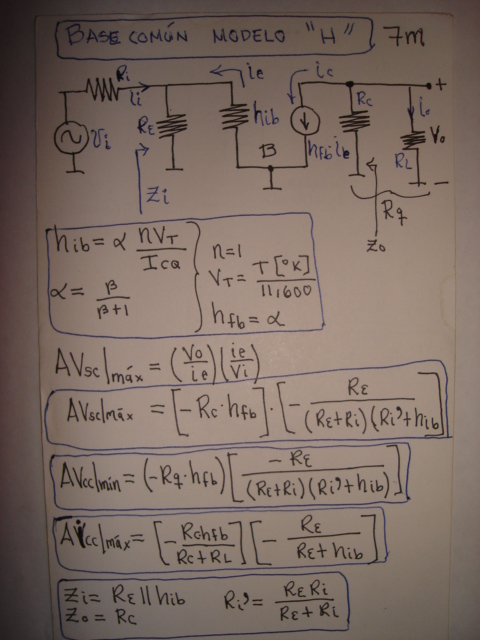 BASE COMÚN MODELO "H" 7m
Ri ii ie ic
RE hib RC io +
vi B hfb ie RL Vo
Zi Rq -
Zo
hib = α nVT/ICQ n=1
α = β/β+1 VT = T[°K]/11,600
hfb = α
AVsc|máx = (Vo/ie)(ie/Vi)
AVsc|máx = [-Rc·hfb]·[- RE/(RE+Ri)(Ri'+hib)]
AVcc|min = (-Rq·hfb)[-RE/(RE+Ri)(Ri'+hib)]
Aicc|máx = [-Rchfb/RC+RL][- RE/RE+hib]
Zi = RE||hib Ri' = RERi/RE+Ri
Zo = RC